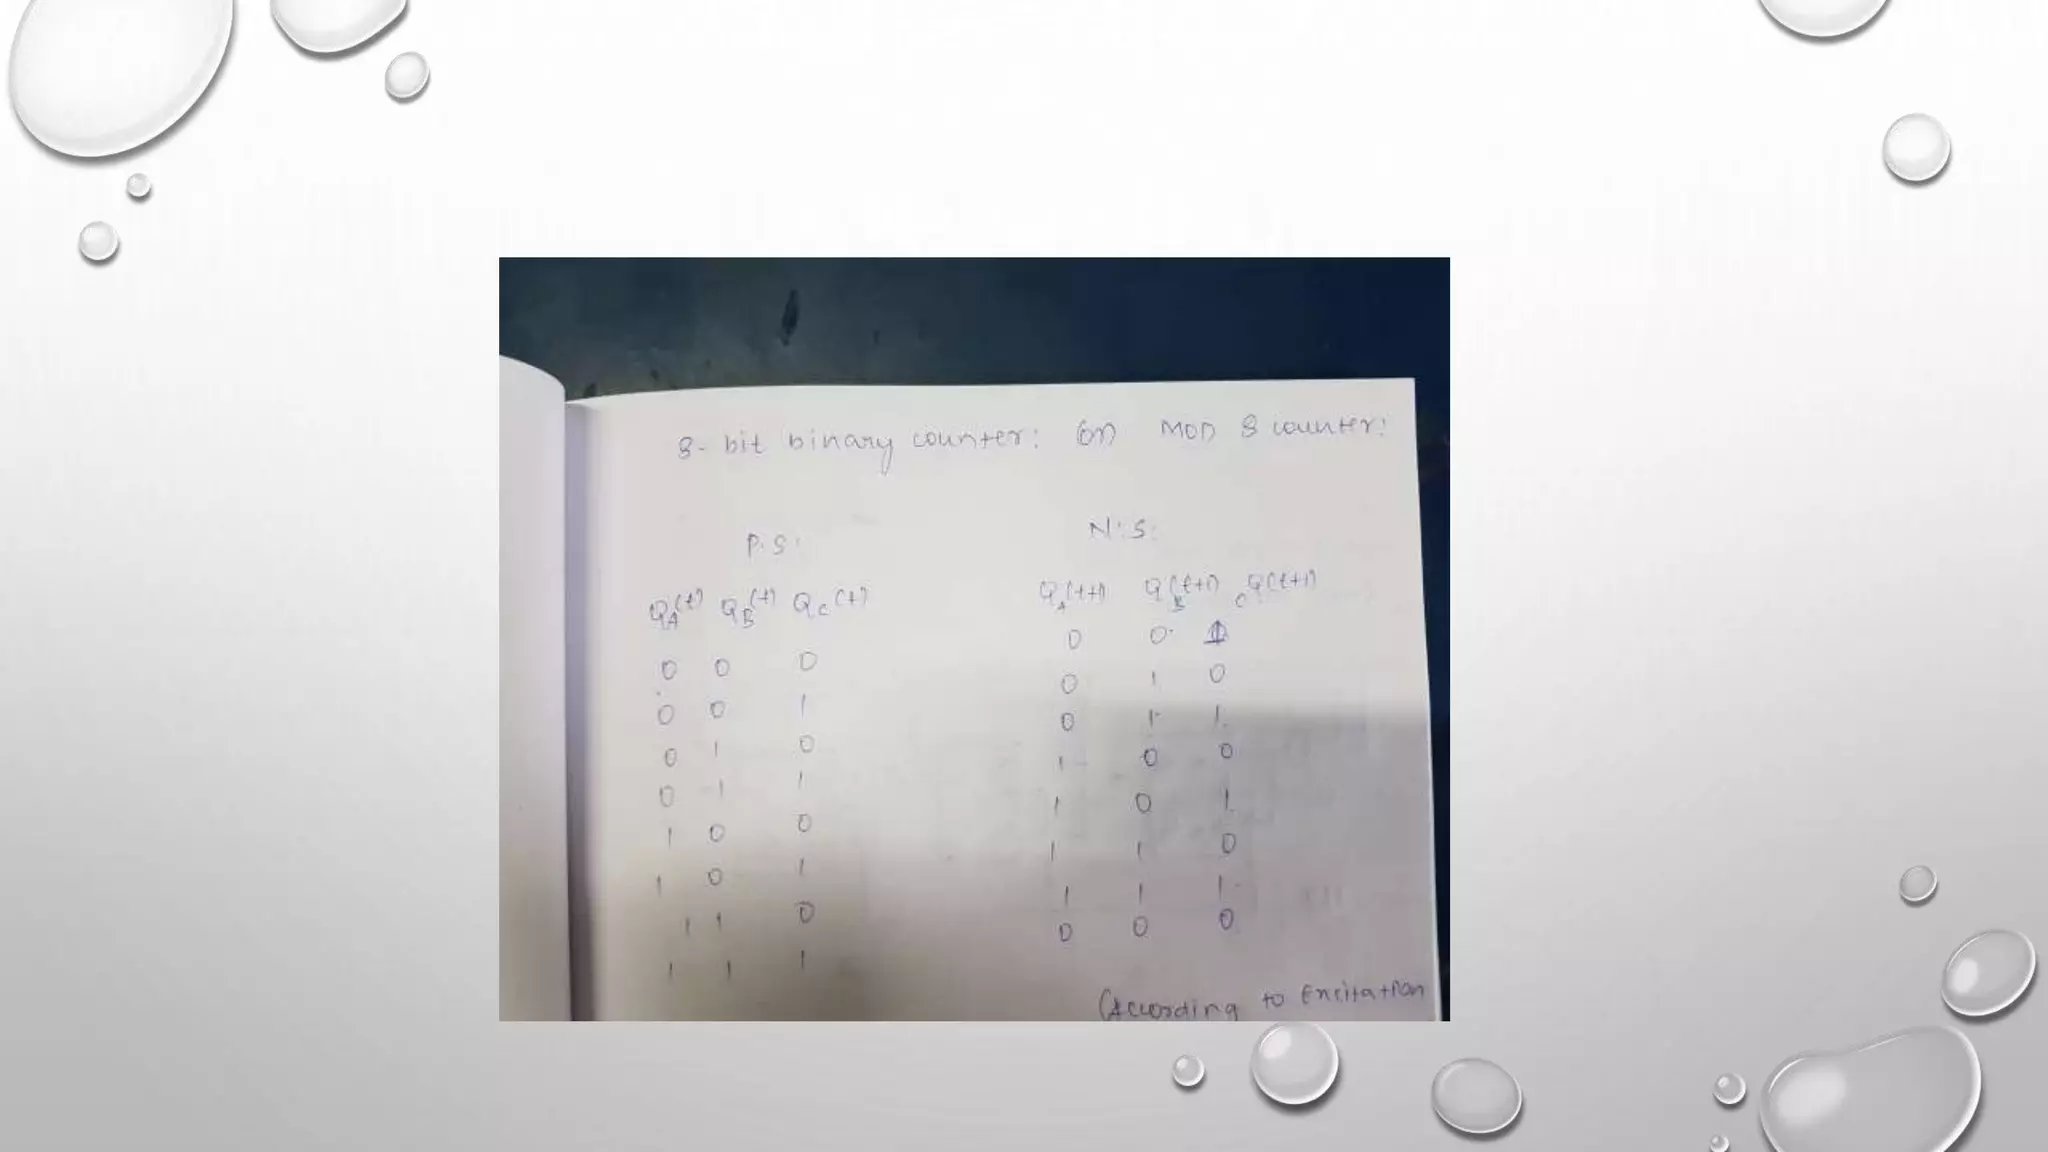 8- bit binary counter: (or) MOD 8 counter:
P.S: N.S:
QA(t) QB(t) QC(t) QA(t+1) QB(t+1) CQ(t+1)
0 0 0 0 0 1
0 0 1 0 1 0
0 1 0 0 1 1
0 1 1 1 0 0
1 0 0 1 0 1
1 0 1 1 1 0
1 1 0 1 1 1
1 1 1 0 0 0
(According to Excitation